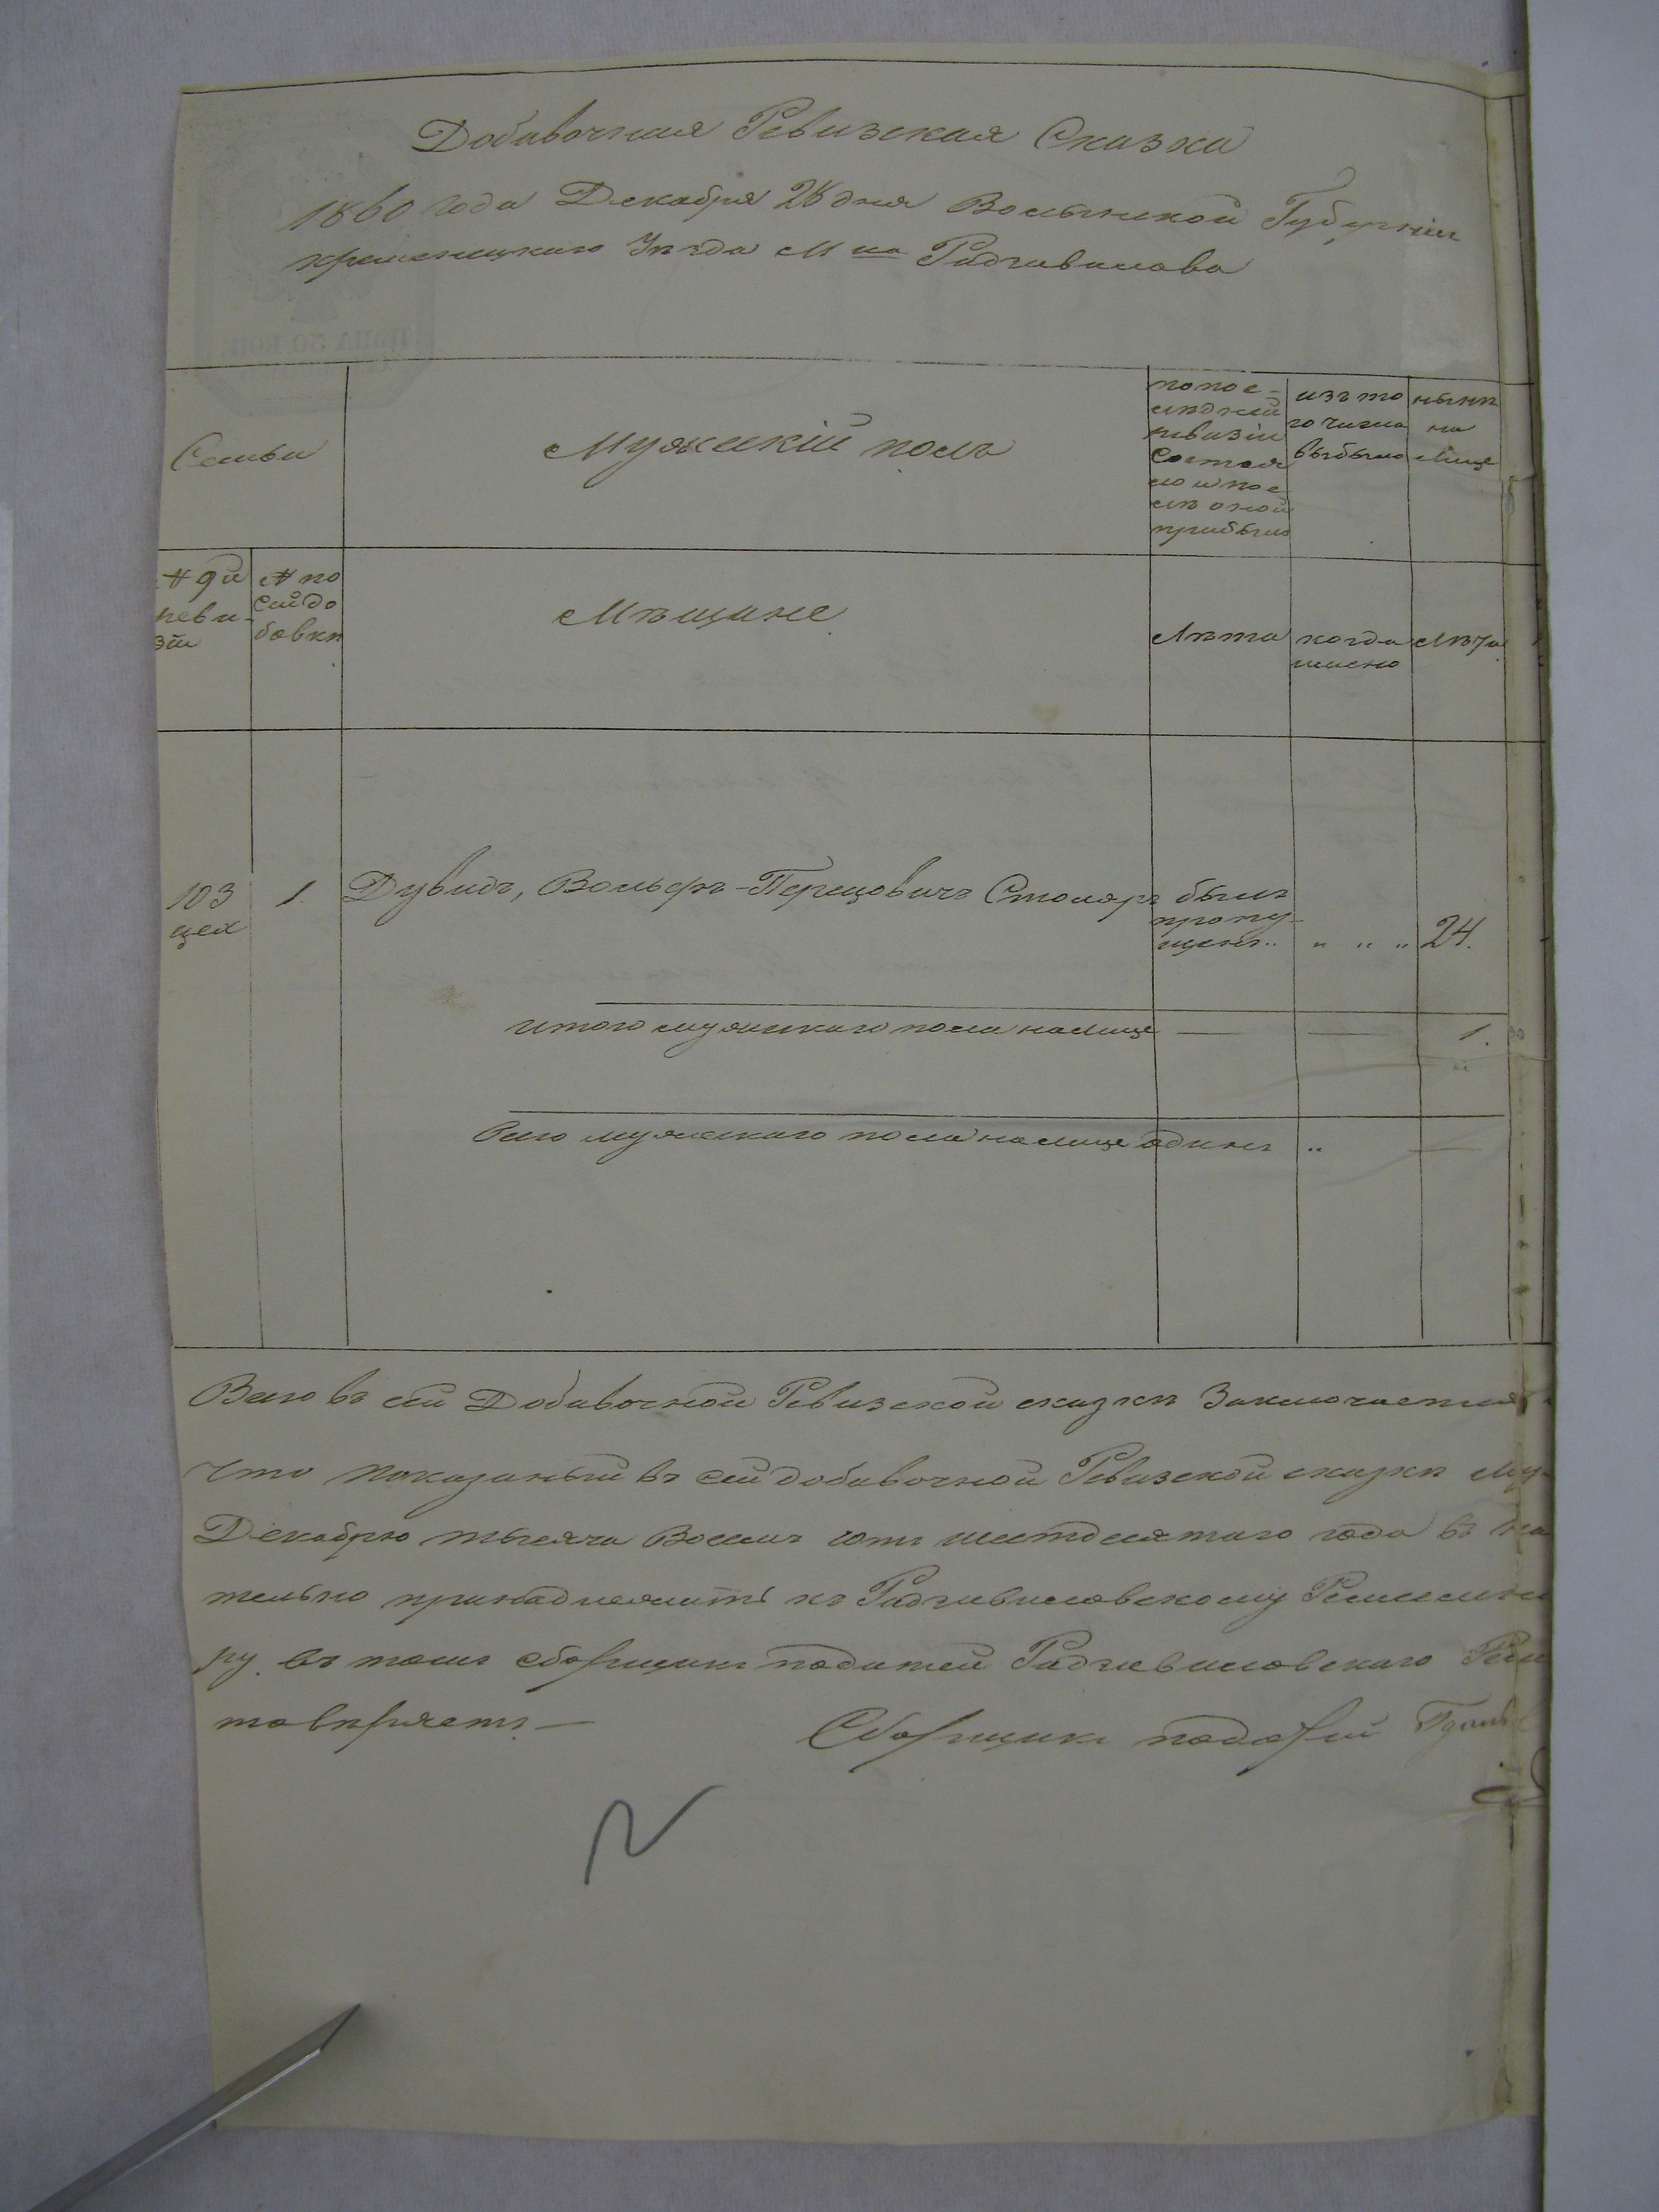 Добавочная Ревизская Сказка
1860 года Декабря 28 дня Волынской Губерніи
кременецкаго Уѣзда М ка Радзивилова
Семьи
Мужескій полъ
по пос-
лѣдней
ревизіи
состоя
ло и пос
лѣ оной
прибыло
изъ то
го числа
выбыло
нынѣ
на
лице
№ 9й
реви-
зіи
№ по
сей до
бавкѣ
Мѣщане
Лѣта
когда
имено
Лѣта
103
цех
1.
Дувидъ, Вольфъ-Перецовичъ Столяръ
былъ
пропу-
щенъ ..
" " "
24.
итого мужескаго пола налице
1.
Сего мужескаго пола налице одинъ "
Всего въ сей Добавочной Ревизской сказкѣ Заключается
Что показаный въ сей добавочной Ревизской сказкѣ Му-
Декабрю тысяча Восемь сотъ шестдесятаго года въ на
тельно принадлежитъ къ Радзивиловскому Ремеслен
ру. въ томъ сборщикъ податей Радзивиловскаго Реме
товѣряетъ —
Сборщикъ податей
ЦѢНА 30 КОП.